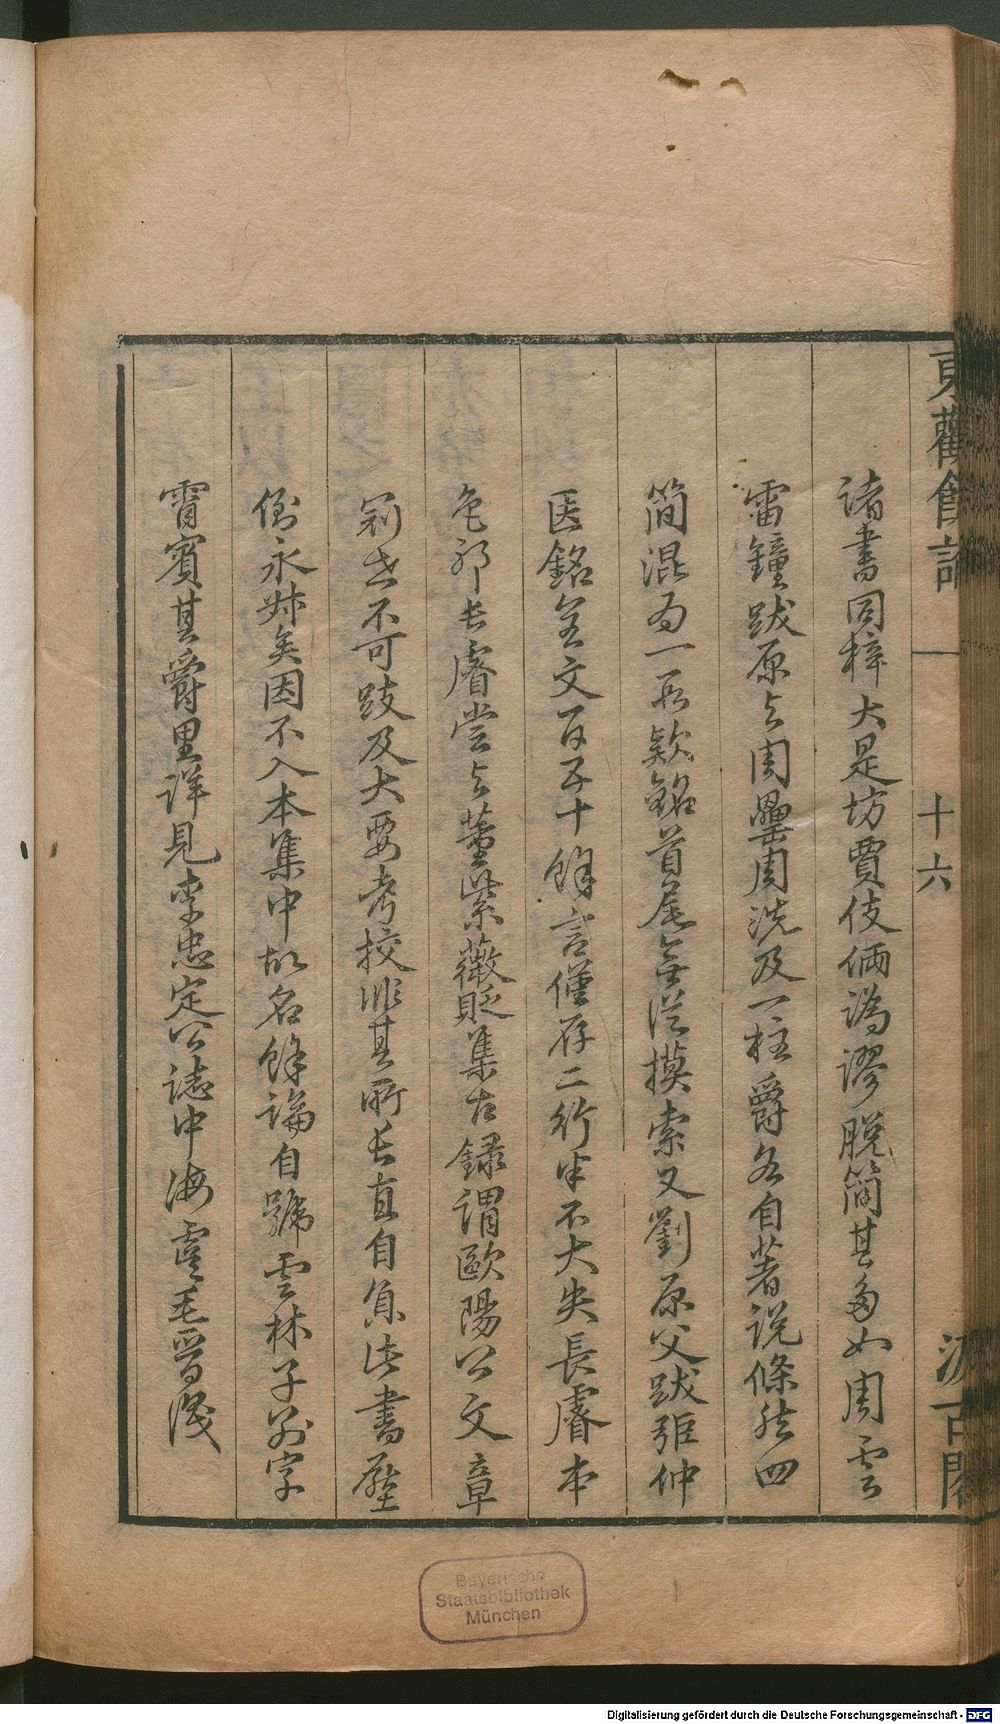 東觀餘論 一 十六 汲古閣
諸書同梓大是坊賈伎倆譌謬脫簡甚多如周雲
雷鐘跋原与周罍周洗及一柱爵各自著說條然四
簡混为一至款銘首尾無從摸索又劉原父跋張仲
医銘全文百五十餘言僅存二行半不大失長睿本
色耶長睿嘗与董紫薇貶集古錄謂歐陽公文章
冠世不可跂及大要考挍非其所長直自負此書壓
倒永叔矣因不入本集中故名餘論自號雲林子别字
霄賓其爵里詳見李忠定公誌中海虞毛晉識
Bayerische
Staatsbibliothek
München
Digitalisierung gefördert durch die Deutsche Forschungsgemeinschaft - DFG